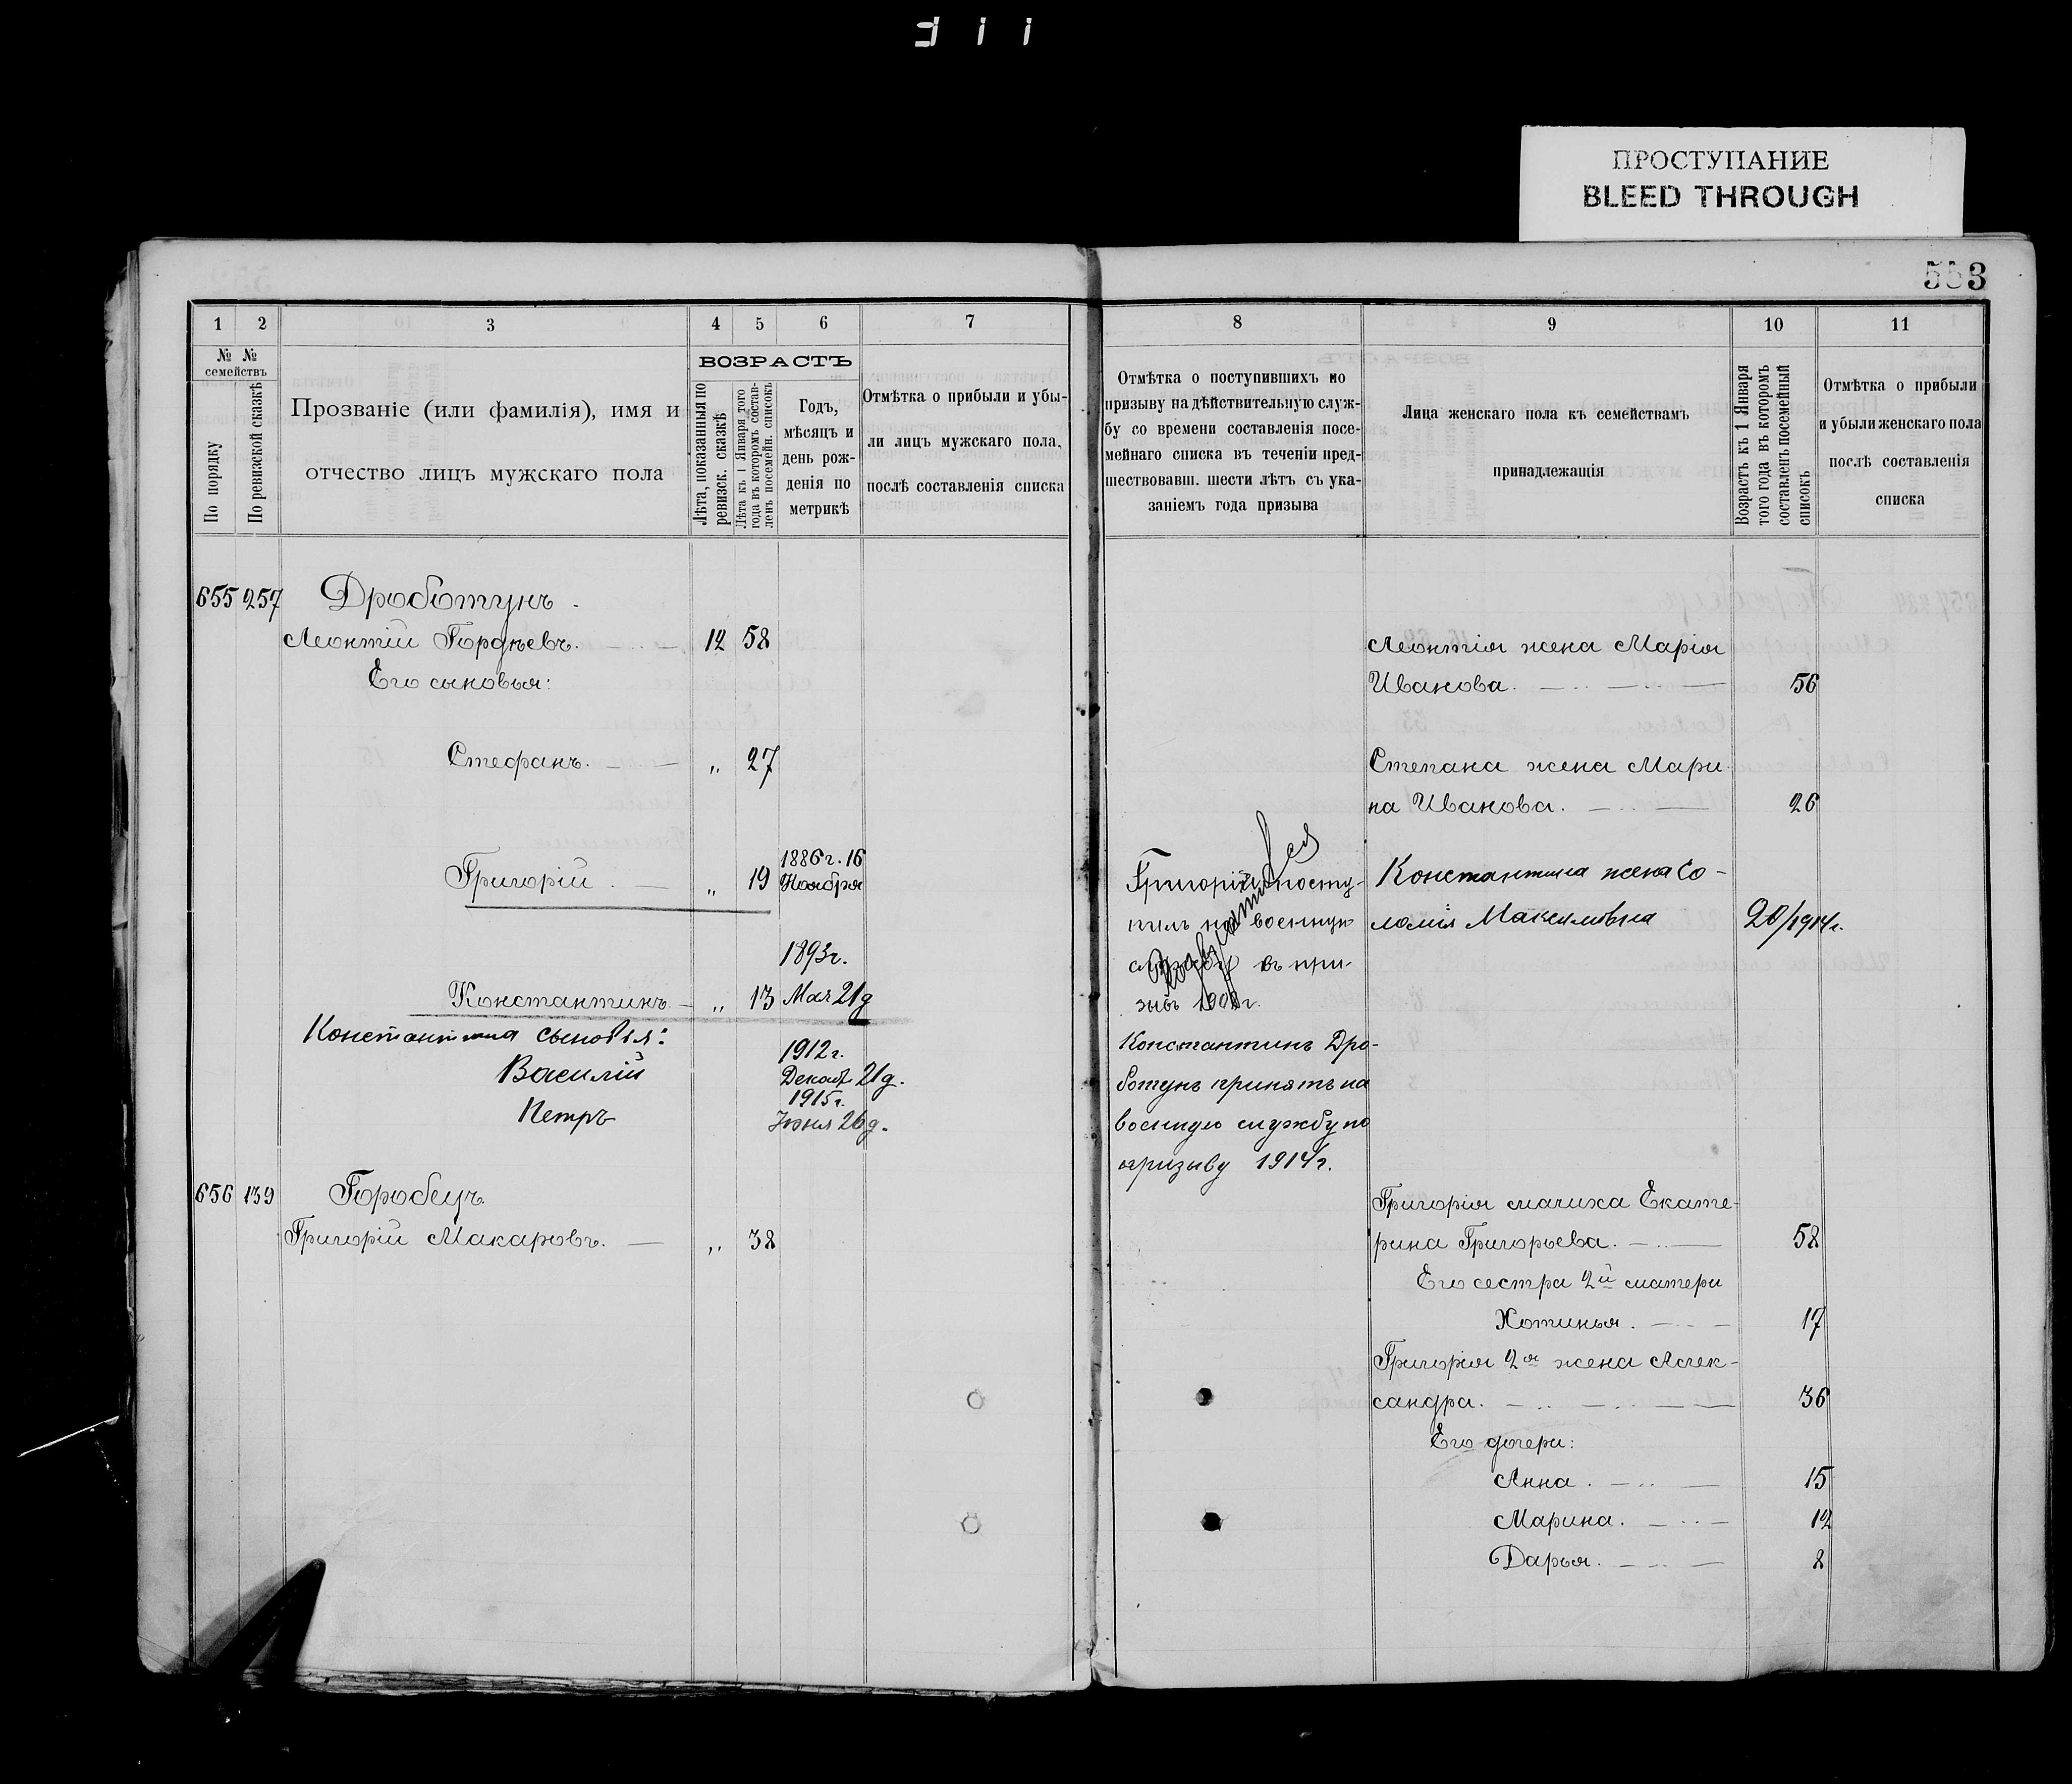 ПРОСТУПАНИЕ
BLEED THROUGH
553
1 2 3 4 5 6 7
№ № семействъ
По порядку
По ревизской сказкѣ
Прозваніе (или фамилія), имя и
отчество лицъ мужскаго пола
ВОЗРАСТЪ
Лѣта, показанныя по
ревизск. сказкѣ
Лѣта къ 1 Января того
года въ которомъ состав-
ленъ посемейн. списокъ
Годъ,
мѣсяцъ и
день рож-
денія по
метрикѣ
Отмѣтка о прибыли и убы-
ли лицъ мужскаго пола,
послѣ составленія списка
655 257 Дроботунъ
Леонтій Гордѣевъ. 12 58
Его сыновья:
Стефанъ. „ 27
Григорій „ 19 1886 г. 16
Ноября
1893 г.
Константинъ „ 13 Мая 21 д
Константина сыновья:
1912 г.
Василій Декаб. 21 д.
1915 г.
Петръ Іюня 26 д.
656 139 Горобецъ
Григорій Макаровъ. „ 38
8 9 10 11
Отмѣтка о поступившихъ по
призыву на дѣйствительную служ-
бу со времени составленія посе-
мейнаго списка въ теченіи пред-
шествовавш. шести лѣтъ съ ука-
заніемъ года призыва
Лица женскаго пола къ семействамъ
принадлежащія
Возрастъ къ 1 Января
того года въ которомъ
составленъ посемейный
списокъ
Отмѣтка о прибыли
и убыли женскаго пола
послѣ составленія
списка
Леонтія жена Марія
Иванова. 56
Степана жена Мари-
на Иванова. 26
Григорій посту-
пилъ на военную
службу въ при-
зывъ
Константина жена Со-
ломія Максимовна 20/1914 г.
Константинъ Дро-
ботунъ принятъ на
военную службу по
призыву 1914 г.
Григорія мачиха Екате-
рина Григорьева. 58
Его сестра 2й матери
Хотинья. 17
Григорія 2я жена Алек-
сандра. 36
Его дочери:
Анна. 15
Марина. 12
Дарья. 8